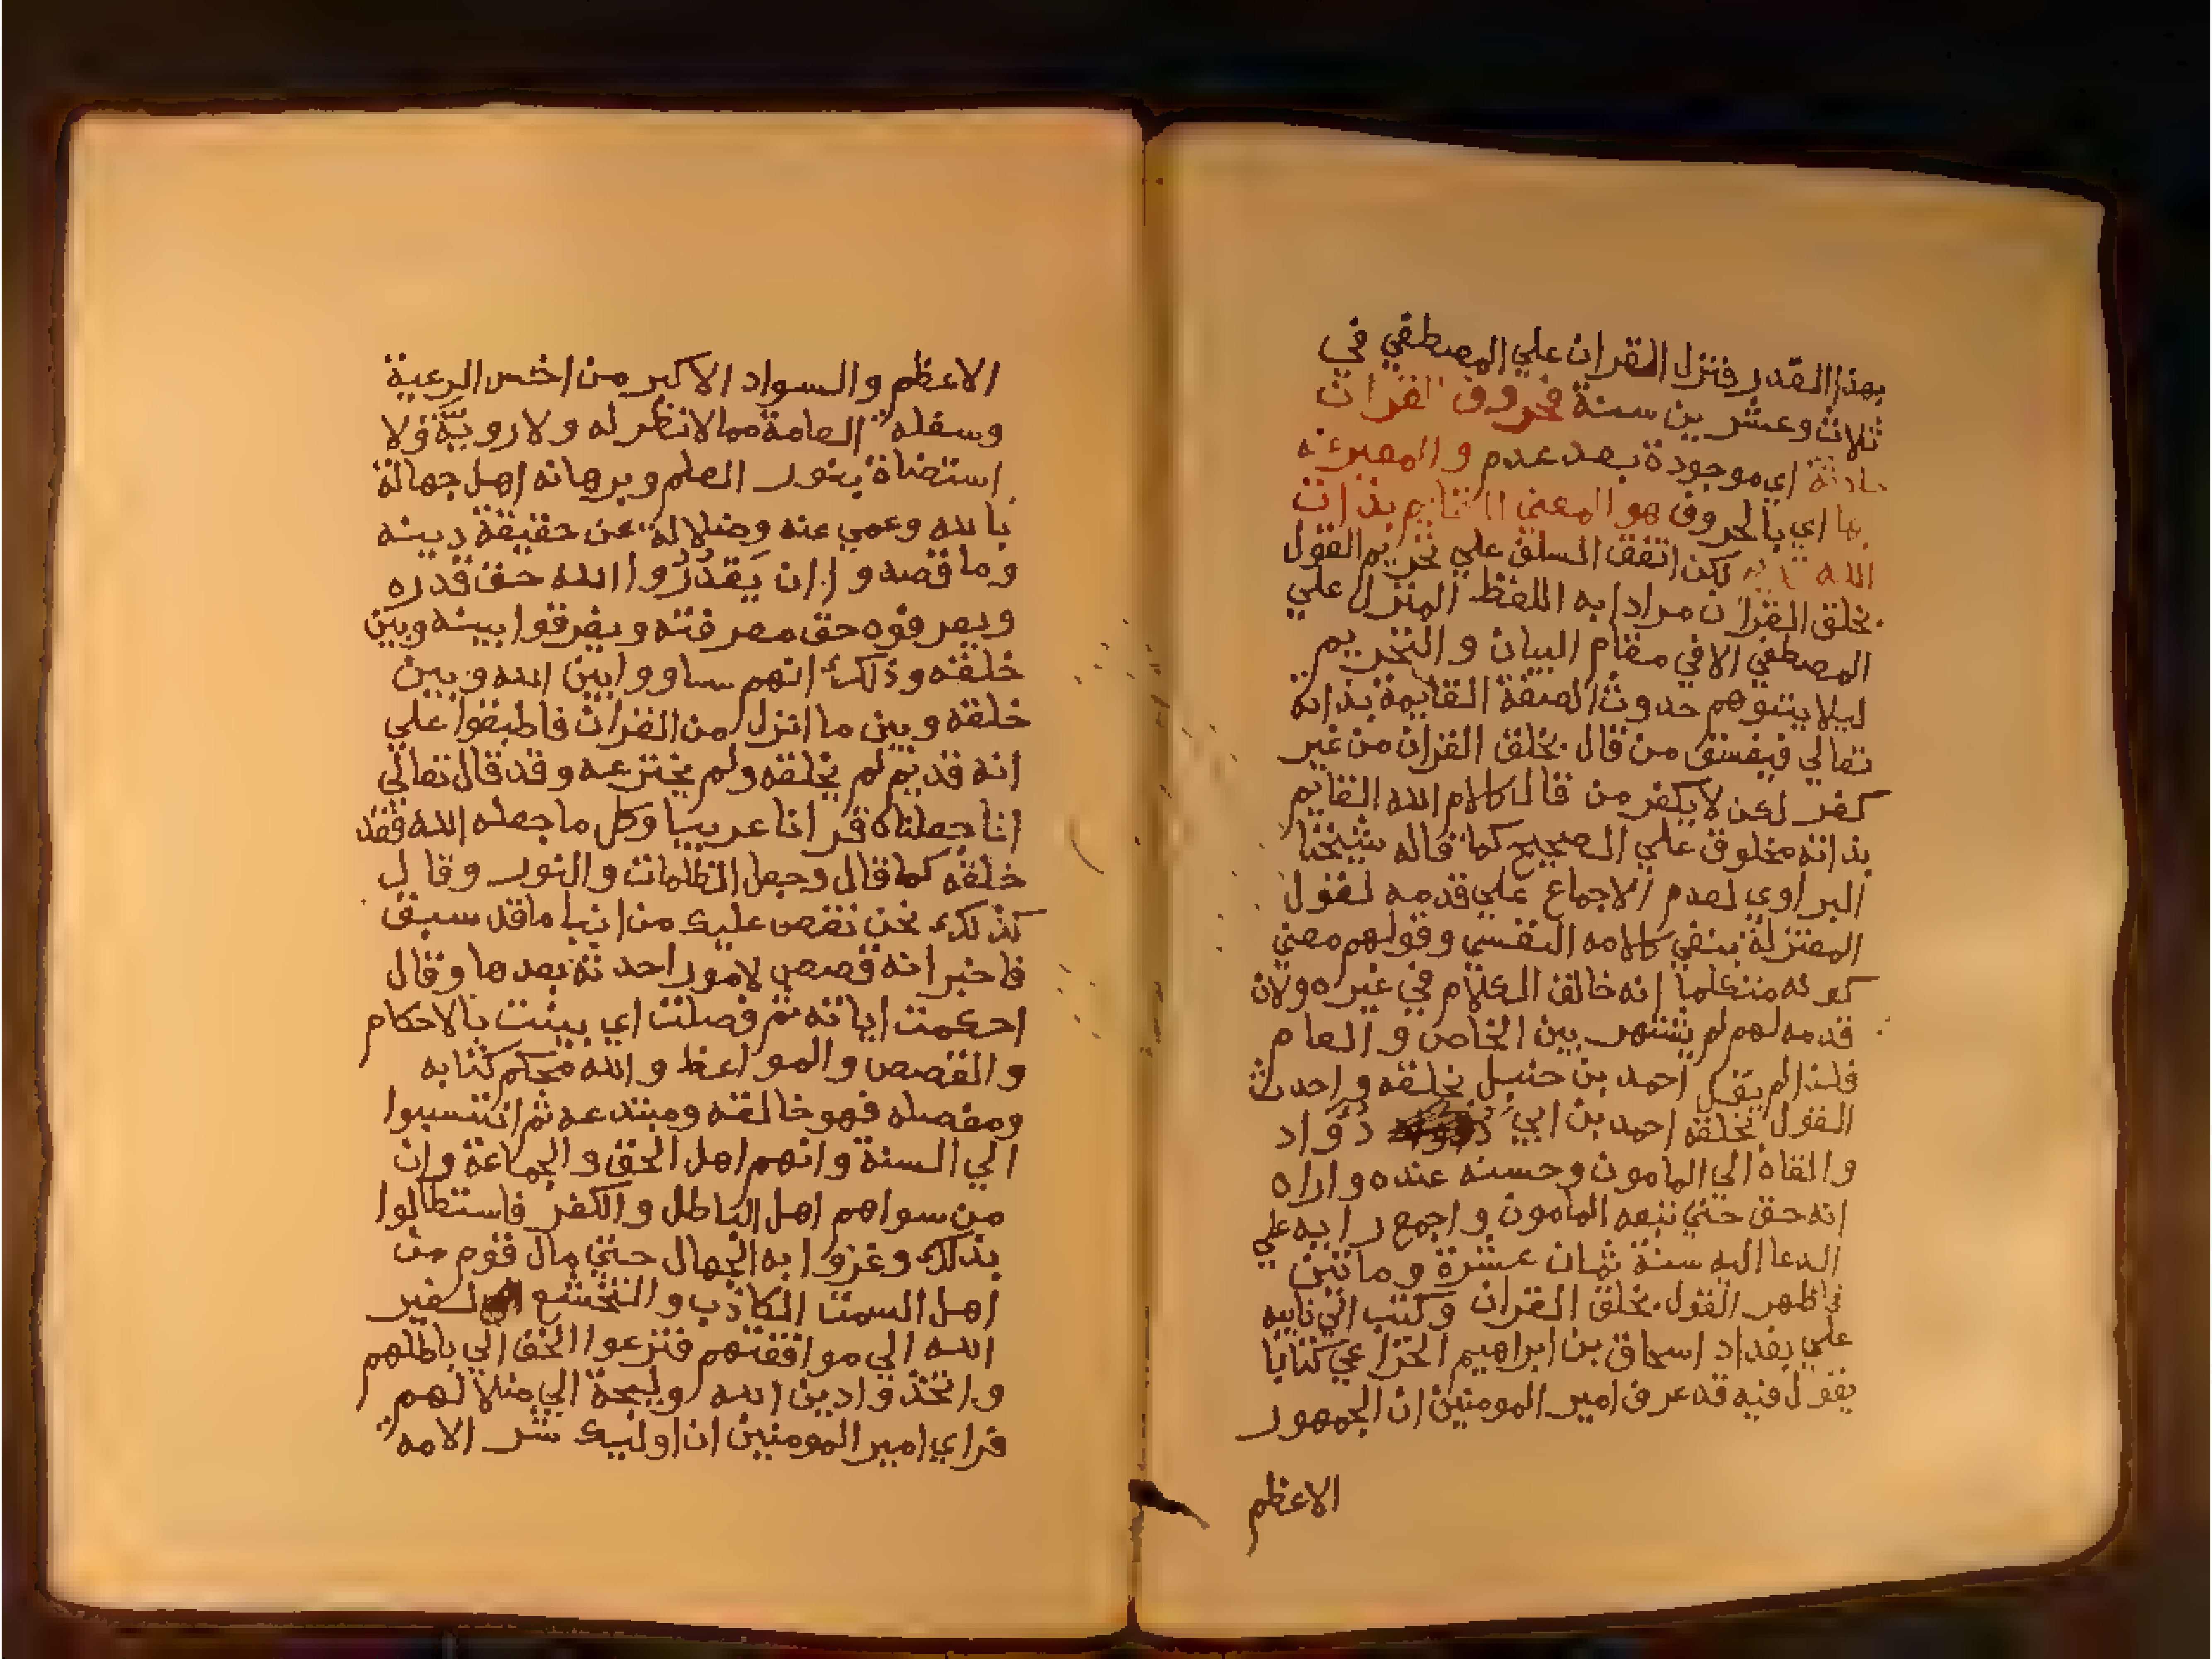 بهذا القدر فنزل القران علي المصطفي في
ثلاث وعشرين سنة فحروف القران
حادثة اي موجودة بعد عدم والمعبر عنه
بها اي بالحروف هو المعني القايم بذات
الله لكن اتفق السلف علي تحريم القول
بخلق القران مرادا به اللفظ المنزل علي
المصطفي الا في مقام البيان والتحريم
ليلا يتوهم حدوث الصفة القايمة بذاته
تعالي فيفسق من قال بخلق القران من غير
كفر لكن لا يكفر من قال كلام الله القايم
بذاته مخلوق علي الصحيح كما قاله شيخنا
البراوي لعدم الاجماع علي قدمه لقول
المعتزلة بنفي كلامه النفسي وقولهم معني
كونه متكلما انه خالق الكلام في غيره ولان
قدمه لهم لم يشتهر بين الخاص والعام
فلذا لم يقل احمد بن حنبل بخلقه واحدث
القول بخلقه احمد بن ابي دؤاد
والقاه الي المامون وحسنه عنده واراه
انه حق حتي تبعه المامون واجمع رايه علي
الدعا اليه سنة ثمان عشرة وماتين
فاظهر القول بخلق القران وكتب الي نايبه
علي بغداد اسحاق بن ابراهيم الخزاعي كتابا
يقول فيه قد عرف امير المومنين ان الجمهور
الاعظم
الاعظم والسواد الاكبر من اخس الرعية
وسفلة العامة مما لا نظر له ولا روية ولا
استضاة بنور العلم وبرهانه اهل جهالة
بالله وعمي عنه وضلالة عن حقيقة دينه
وما قصدوا ان يَقدُرُوا الله حق قدره
ويعرفوه حق معرفته ويفرقوا بينه وبين
خلقه وذلك انهم ساووا بين الله وبين
خلقه وبين ما انزل من القران فاطبقوا علي
انه قديم لم يخلقه ولم يخترعه وقد قال تعالي
انا جعلناه قرانا عربيا وكل ما جعله الله فقد
خلقه كما قال وجعل الظلمات والنور وقال
كذلك نحن نقص عليك من انبا ما قد سبق
فاخبر انه قصص لامور احدثه بعدها وقال
احكمت اياته ثم فصلت اي بينت بالاحكام
والقصص والمواعظ والله محكم كتابه
ومفصله فهو خالقه ومبتدعه ثم انتسبوا
الي السنة وانهم اهل الحق والجماعة وان
من سواهم اهل الباطل والكفر فاستطالوا
بذلك وغزوا به الجهال حتي مال قوم من
اهل السمت الكاذب والتخشع لغير
الله الي موافقتهم فنزعوا الحق الي باطلهم
واتخذوا دين الله وليجة الي ضلالهم
فراي امير المومنين ان اوليك شر الامه